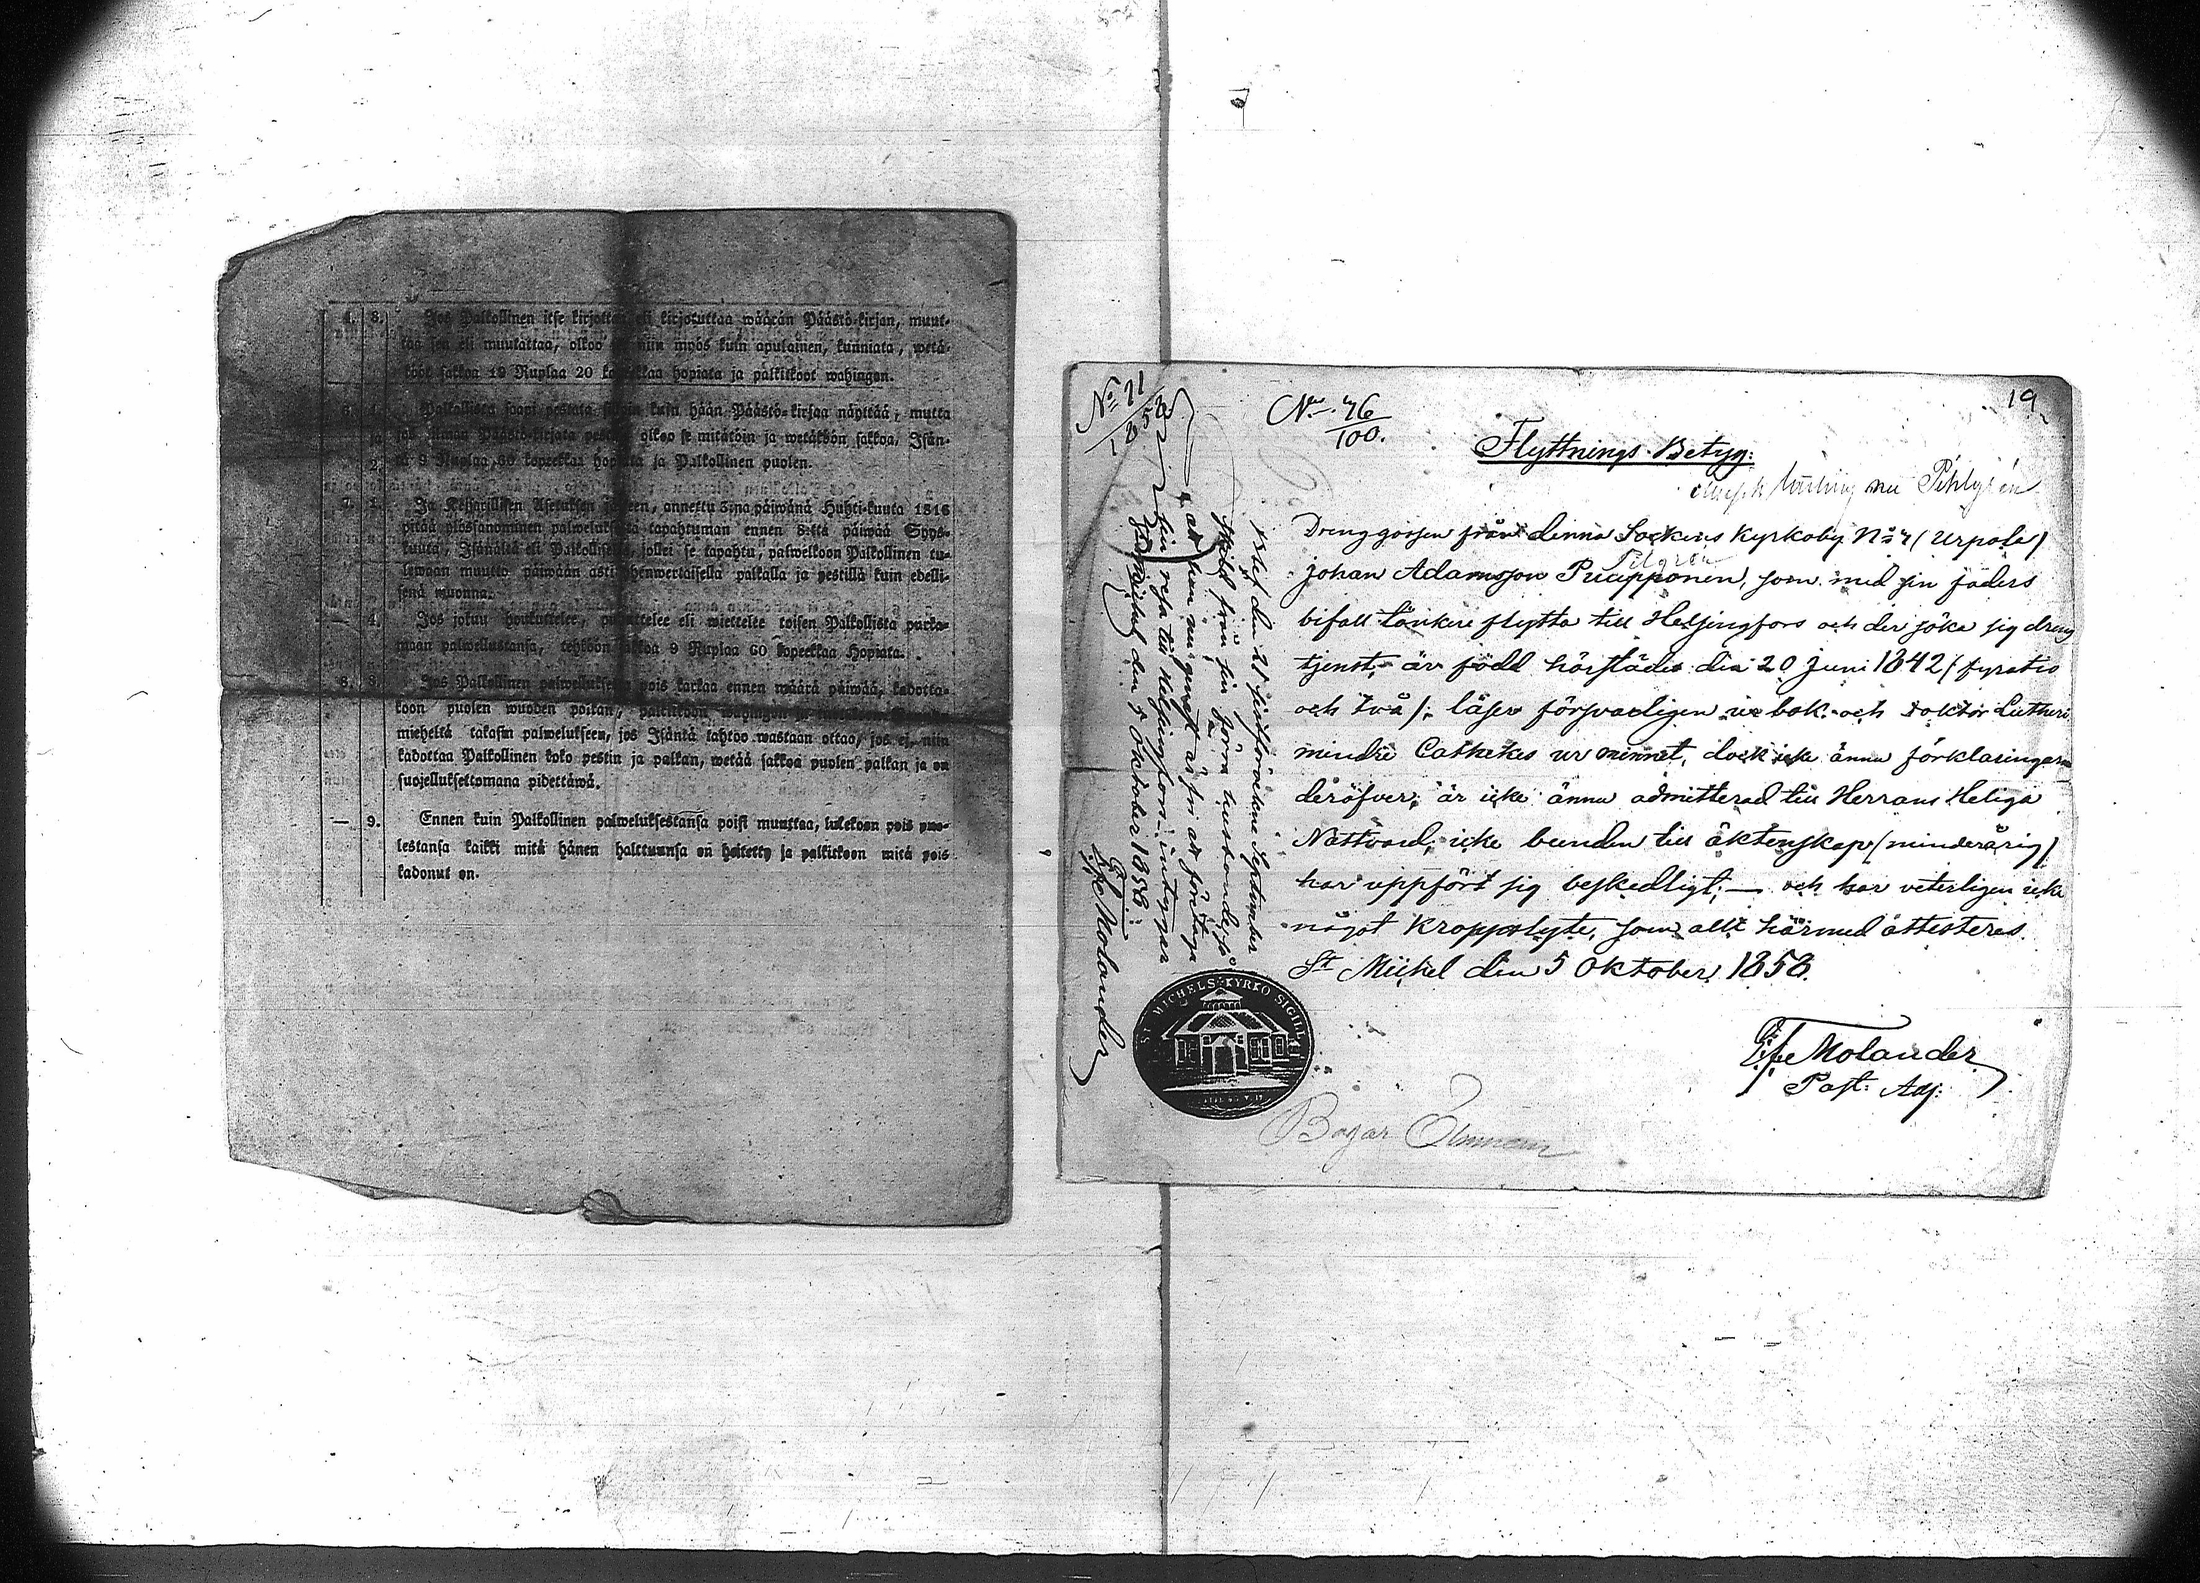 4. 8. Jos Palkollinen itse kirjottaa eli kirjotuttaa wäärän Päästö-kirjan, muut-
taa sen eli muutattaa, olkoo niin myös kuin apulainen, kunniata, wetä-
köön sakkoa 19 Ruplaa 20 kopeekkaa hopiata ja palkitkoot wahingon.
Palkollista saapi pestata silloin kuin hään Päästö-kirjaa näyttää, mutta
jos ilman Päästö-kirjata olkoo se mitätöin ja wetäköön sakkoa, Isän-
tä 9 Ruplaa 60 kopeekkaa hopiata ja Palkollinen puolen.
7. 1. Ja Keisarillisen Asetuksen jälkeen, annettu 3:na päiwänä Huhti-kuuta 1816
pitää ylössanominen palweluksesta tapahtuman ennen 8:tta päiwää Syys-
kuuta, Isännältä eli Palkolliselta, jollei se tapahtu, palwelkoon Palkollinen tu-
lewaan muutto päiwään asti yhdenwertaisella palkalla ja pestillä kuin edelli-
senä wuonna.
— 4. Jos joku houkuttelee, eli wiettelee toisen Palkollista karka-
maan palwellustansa, tehköön sakkoa 9 Ruplaa 60 kopeekkaa Hopiata.
8. 8. Jos Palkollinen palweluksesta pois karkaa ennen määrä päiwää, kadotta-
koon puolen wuoden palkan, palkitkoon wahingon ja
mieheltä takasin palwelukseen, jos Isäntä tahtoo wastaan ottaa, jos ej, niin
kadottaa Palkollinen koko pestin ja palkan, wetää sakkoa puolen palkan ja on
suojelluksettomana pidettäwä.
— 9. Ennen kuin Palkollinen palweluksestansa poisi muuttaa, lukekoon pois puo-
lestansa kaikki mitä hänen halttuunsa on heitetty ja palkitkoon mitä pois
kadonut on.
19
No 71
1858
No. 76
100.
Flyttnings-Betyg:
nu Pihlgrén
Drenggossen från denna Sockens Kyrkoby No 4 (Urpola)
Pilgrén
Johan Adamsson Puupponen, som med sin faders
bifall tänker flytta till Helsingfors och der söka sig dreng
tjenst, är född härstädes den 20 Juni 1842 (fyratio
och två); läser försvarligen ur bok och Doktor Lutheri
mindre Cathekes ur minnet, dock icke ännu förklaringarna
deröfver; är icke ännu admitterad till Herrans Heliga
Nattvard, icke bunden till äktenskap (minderårig)
har uppfört sig beskedligt; — och har veterligen icke
något kroppslyte, som allt härmed attesteras.
St Michel den 5 Oktober 1858.
Molander
Past: Adj:
blef den 21 sistförvekne September
skild från sin förra husbonde, så
att hon nu fri att företaga
sin resa till Helsingfors, intygar
St Michel den 5 Oktober 1858.
Molander
ST MICHELS KYRKO SIGILL